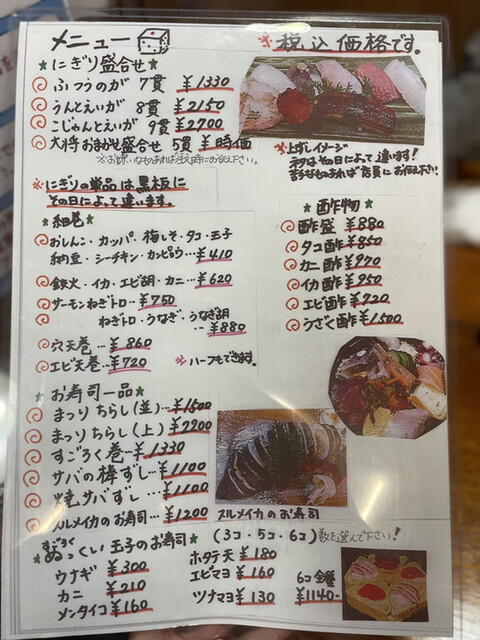 メニュー
※税込価格です。
★にぎり盛合せ★
ふつうのが 7貫 ¥1330
うんとえいが 8貫 ¥2150
こじゃんとえいが 9貫 ¥2700
大将おまかせ盛合せ 5貫 ¥時価
※お嫌いなものあれば注文時にお伝え下さい。
※上ずしイメージ
ネタはその日によって違います!
苦手なものあれば店員にお伝え下さい!
※にぎりの単品は黒板に
その日によって違います。
★細巻★
おしんこ・カッパ・梅しそ・タコ・玉子
納豆・シーチキン・カンピョウ…¥410
鉄火・イカ・エビ胡・カニ…¥620
サーモンねぎトロ…¥750
ねぎトロ・うなぎ・うなぎ胡
…¥880
穴天巻…¥860
エビ天巻…¥720
※ハーフもできます。
★酢物★
酢盛 ¥880
タコ酢 ¥850
カニ酢 ¥970
イカ酢 ¥950
エビ酢 ¥720
うざく酢 ¥1,500
★お寿司一品★
まつりちらし(並)…¥1500
まつりちらし(上)…¥2200
すごろく巻…¥1330
サバの棒ずし…¥1100
焼サバずし…¥1100
スルメイカのお寿司…¥1200
スルメイカのお寿司
すごろく
★ぬっくい玉子のお寿司★ (3コ・5コ・6コ) 数を選んで下さい!
ウナギ ¥300
カニ ¥210
メンタイコ ¥160
ホタテ天 ¥180
エビマヨ ¥160
ツナマヨ ¥130
6コ全種
¥1140-